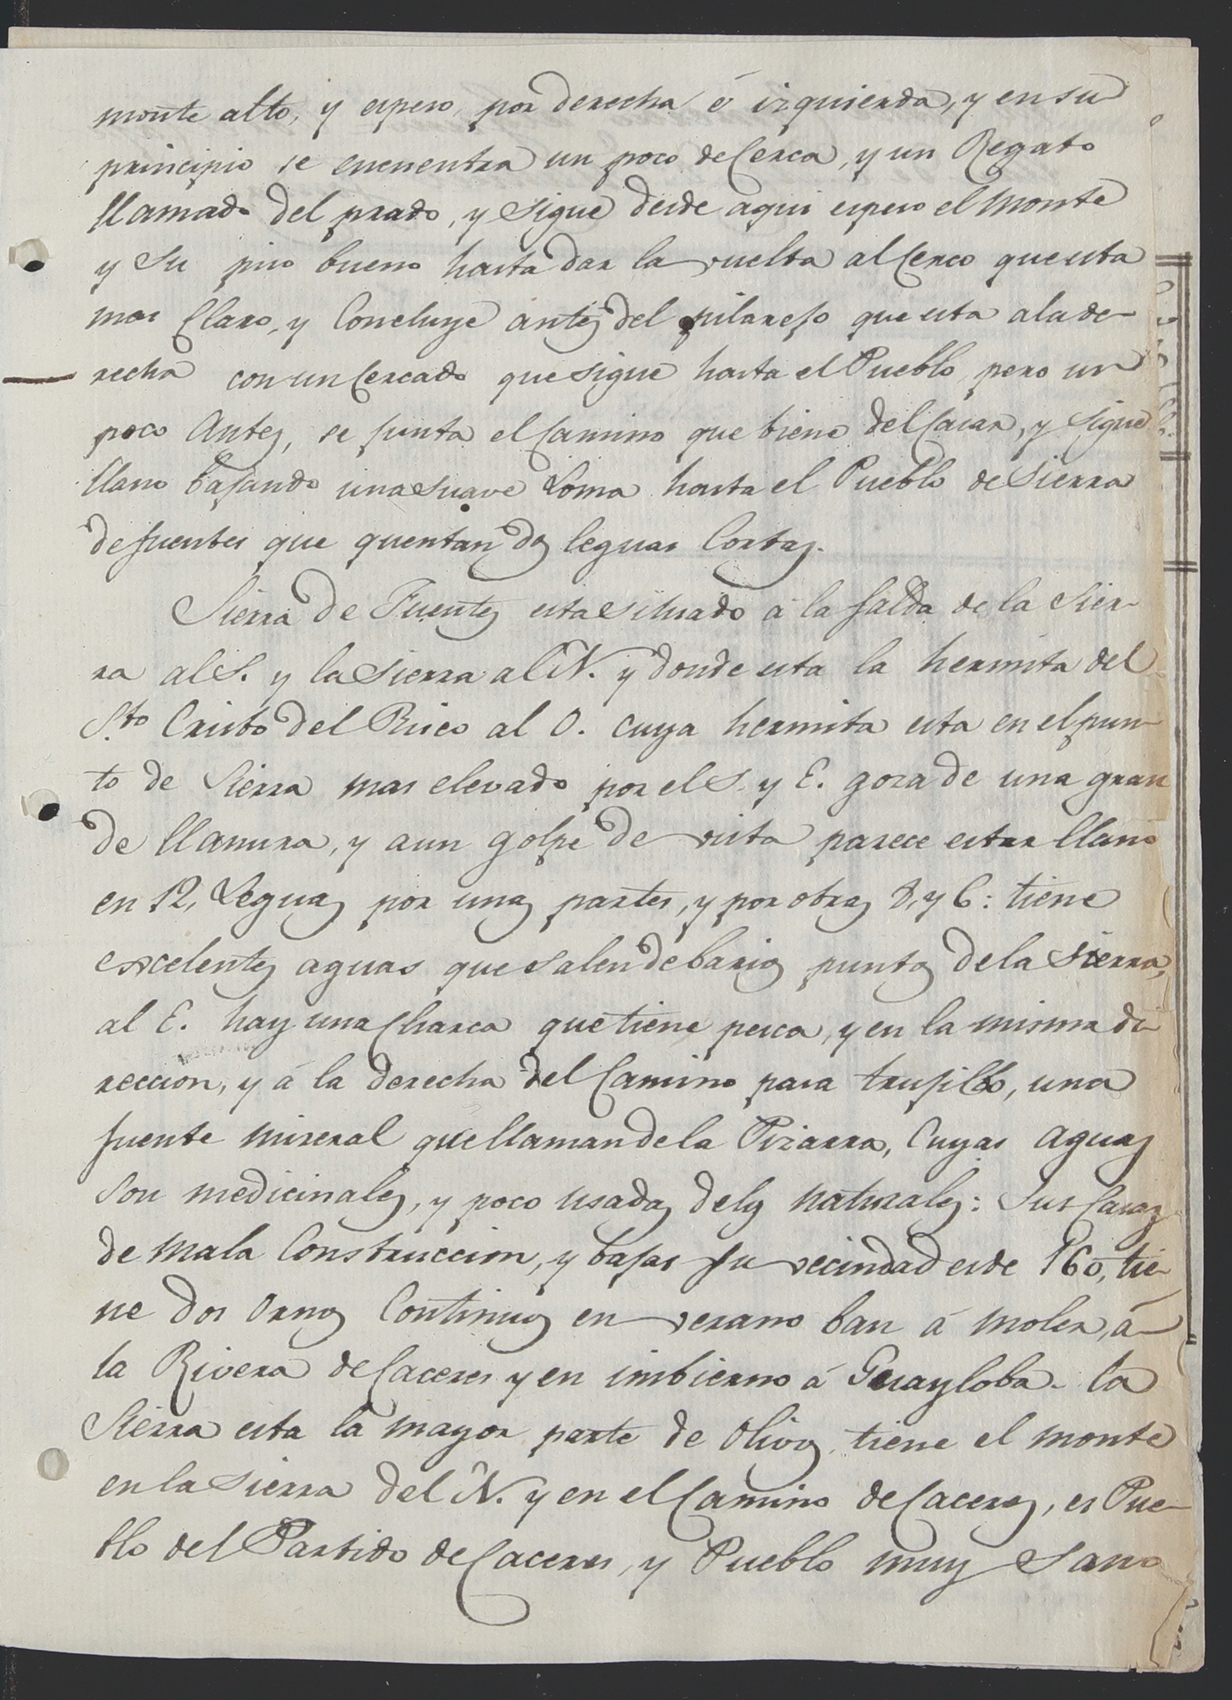 monte alto, y espeso, por derecha é izquierda, y en su
principio se encuentra un poco de Cerca, y un Regato
llamado del prado, y sigue desde aqui espeso el Monte
y su piso bueno hasta dar la vuelta al Cerco que esta
mas Claro, y Concluye antes del pilarejo que esta a la de-
recha con un Cercado que sigue hasta el Pueblo, pero un
poco Antes, se junta el Camino que biene del Casar, y sigue
llano bajando una suave Loma hasta el Pueblo de Sierra
de fuentes que quentan dos leguas Cortas.
Sierra de Fuentes esta situado á la falda de la Sier-
ra al S. y la Sierra al N. y donde esta la hermita del
Sto Cristo del Risco al O. cuya hermita esta en el pun-
to de Sierra mas elevado por el S. y E. goza de una gran
de llanura, y a un golpe de vista parece estar llano
en 12, Leguas por unas partes, y por otras 8, y 6: tiene
excelentes aguas que salen de barios puntos de la Sierra,
al E. hay una Charca que tiene pesca, y en la misma di-
reccion, y á la derecha del Camino para trujillo, una
fuente mineral que llaman de la Pizarra, Cuyas aguas
son medicinales, y poco usadas de los naturales: Sus Casas
de mala Construccion, y bajas su vecindad es de 160, tie-
ne dos Ornos Continuos en verano ban á moler, á
la Rivera de Caceres y en imbierno á Guayloba. la
Sierra esta la mayor parte de Olivos tiene el monte
en la Sierra del N. y en el Camino de Caceres, es Pue-
blo del Partido de Caceres, y Pueblo muy Sano